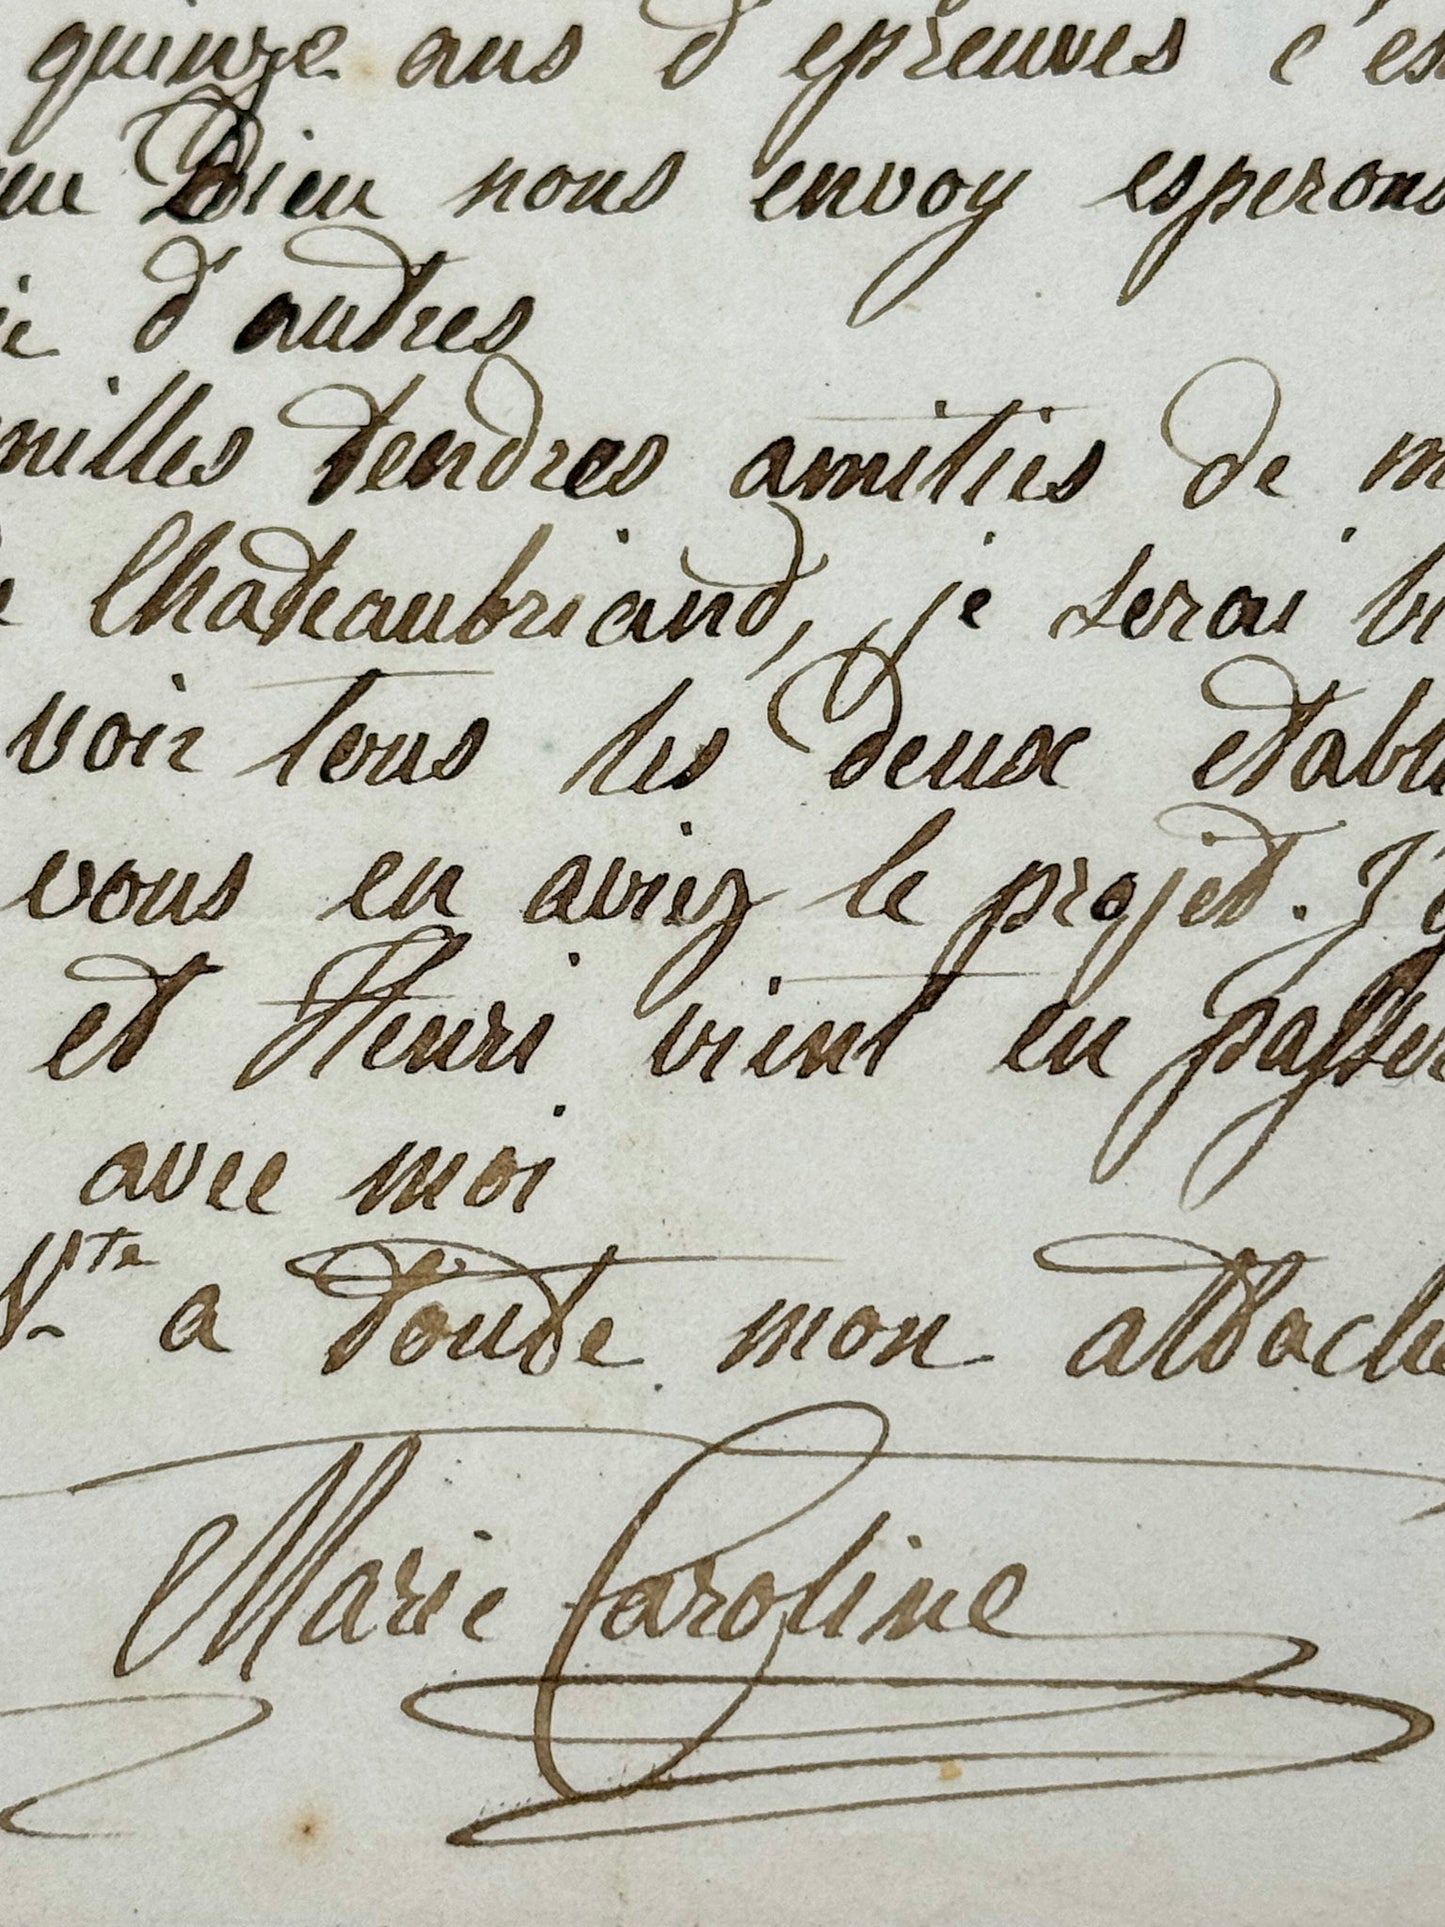 quinze ans d'epreuves c'es
Dieu nous envoy esperons
d'autres
milles tendres amitiés de m
Chateaubriand, je serai bi
voir tous les deux etabli
vous en aviez le projet. J'y
et Henri vient en passer
avec moi
Vte a toute mon attache
Marie Caroline